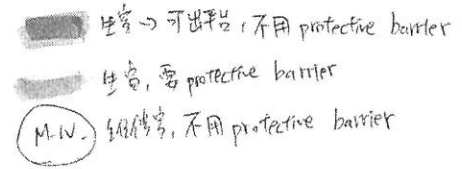 生窗 → 可出平台, 不用 protective barrier
生窗, 要 protective barrier
M.W. 窗, 不用 protective barrier